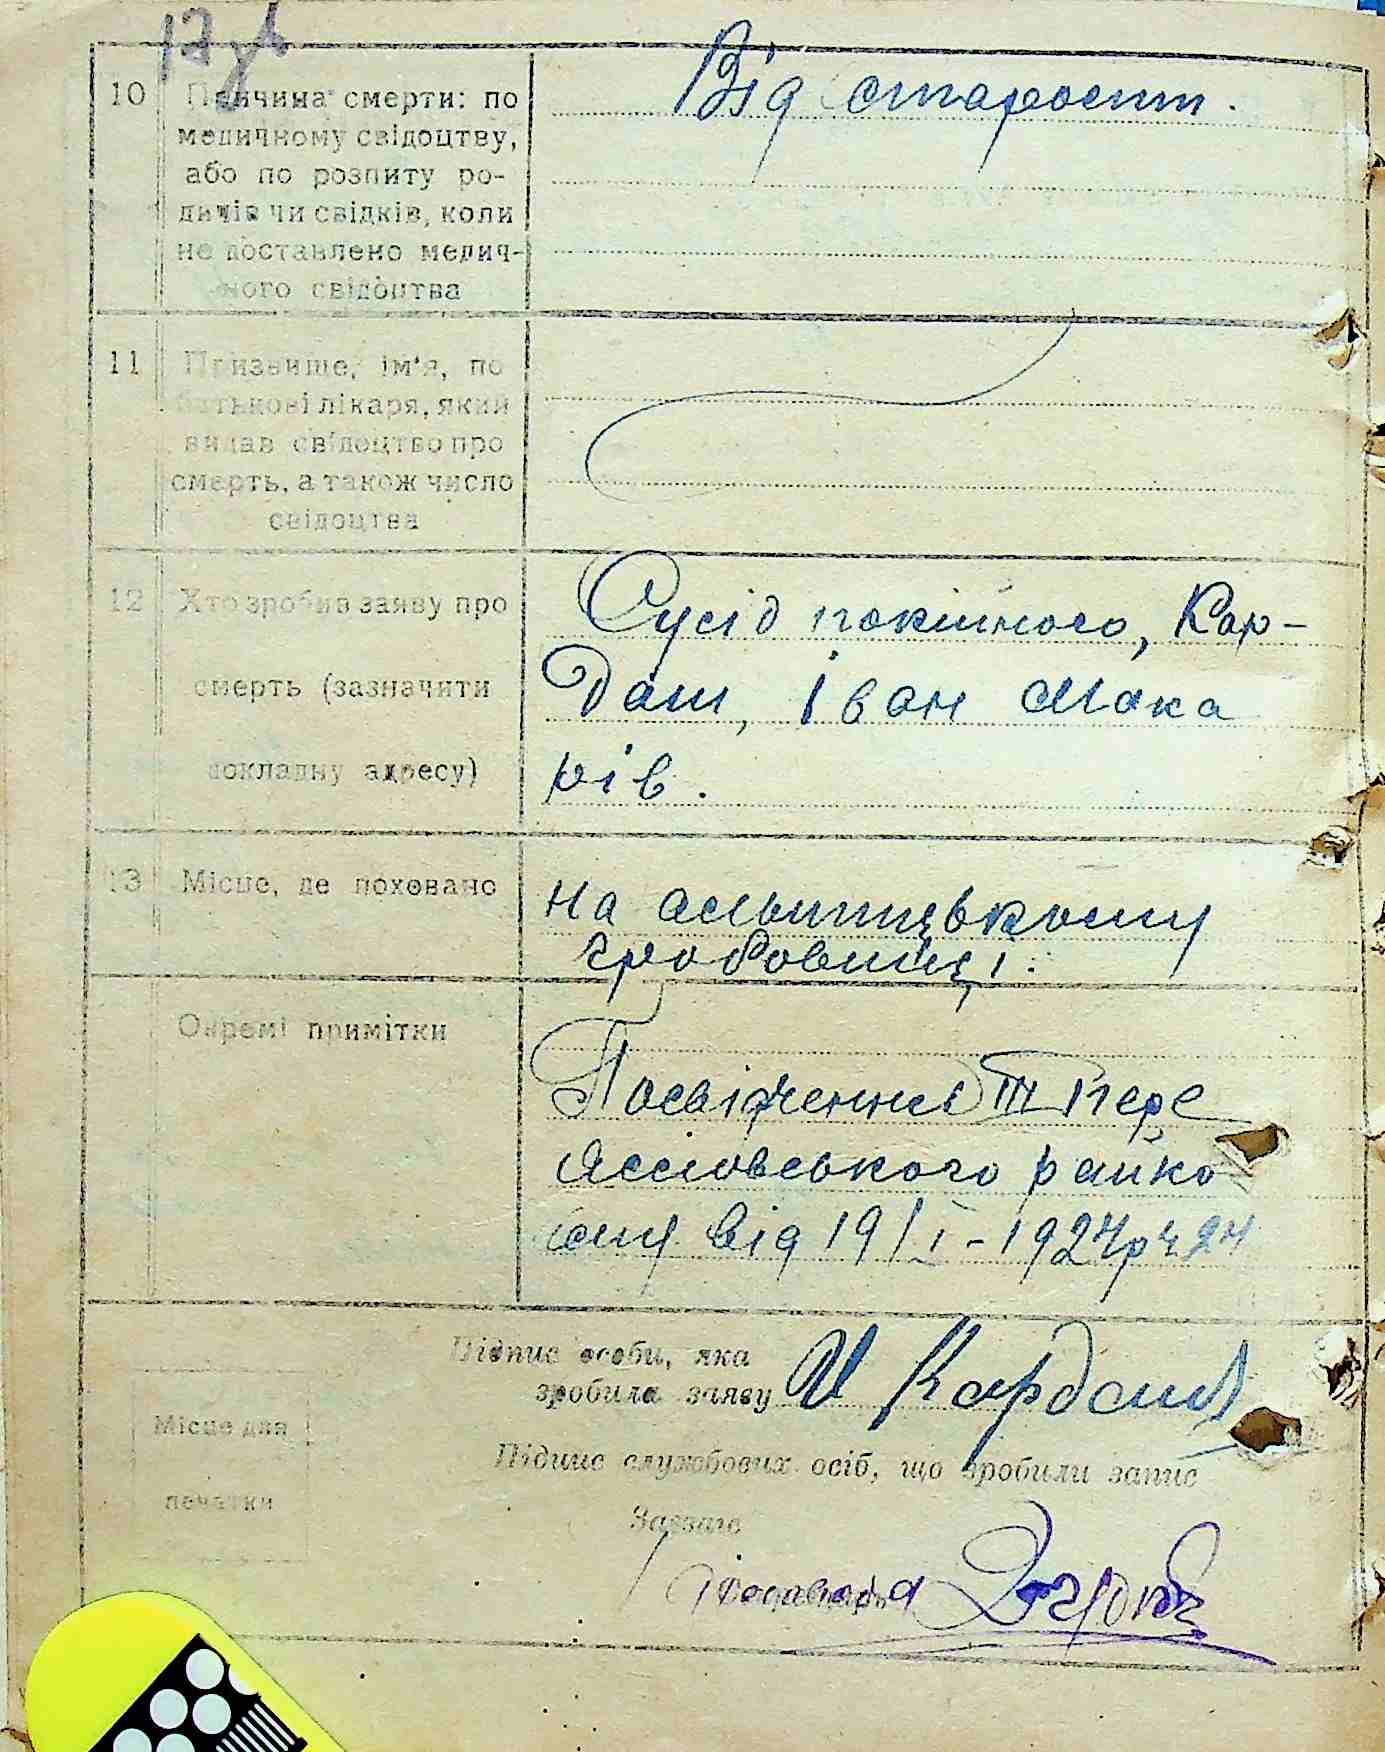 10
Причина смерти: по
медичному свідоцтву,
або по розпиту ро-
дичів чи свідків, коли
не доставлено медич-
ного свідоцтва
Від старости.
11
Призвище, ім'я, по
батькові лікаря, який
видав свідоцтво про
смерть, а також число
свідоцтва
12
Хто зробив заяву про
смерть (зазначити
докладну адресу)
Сусід покійного, Кар-
даш, Іван Мака
рів.
13
Місце, де поховано
на
гробовищі.
Окремі примітки
Посвідчення Пере
райко
му від 19/I-1924р ч 24
Підпис особи, яка
зробила заяву И Кардаш
Місце для
печатки
Підпис службових осіб, що зробили запис
Завзагс